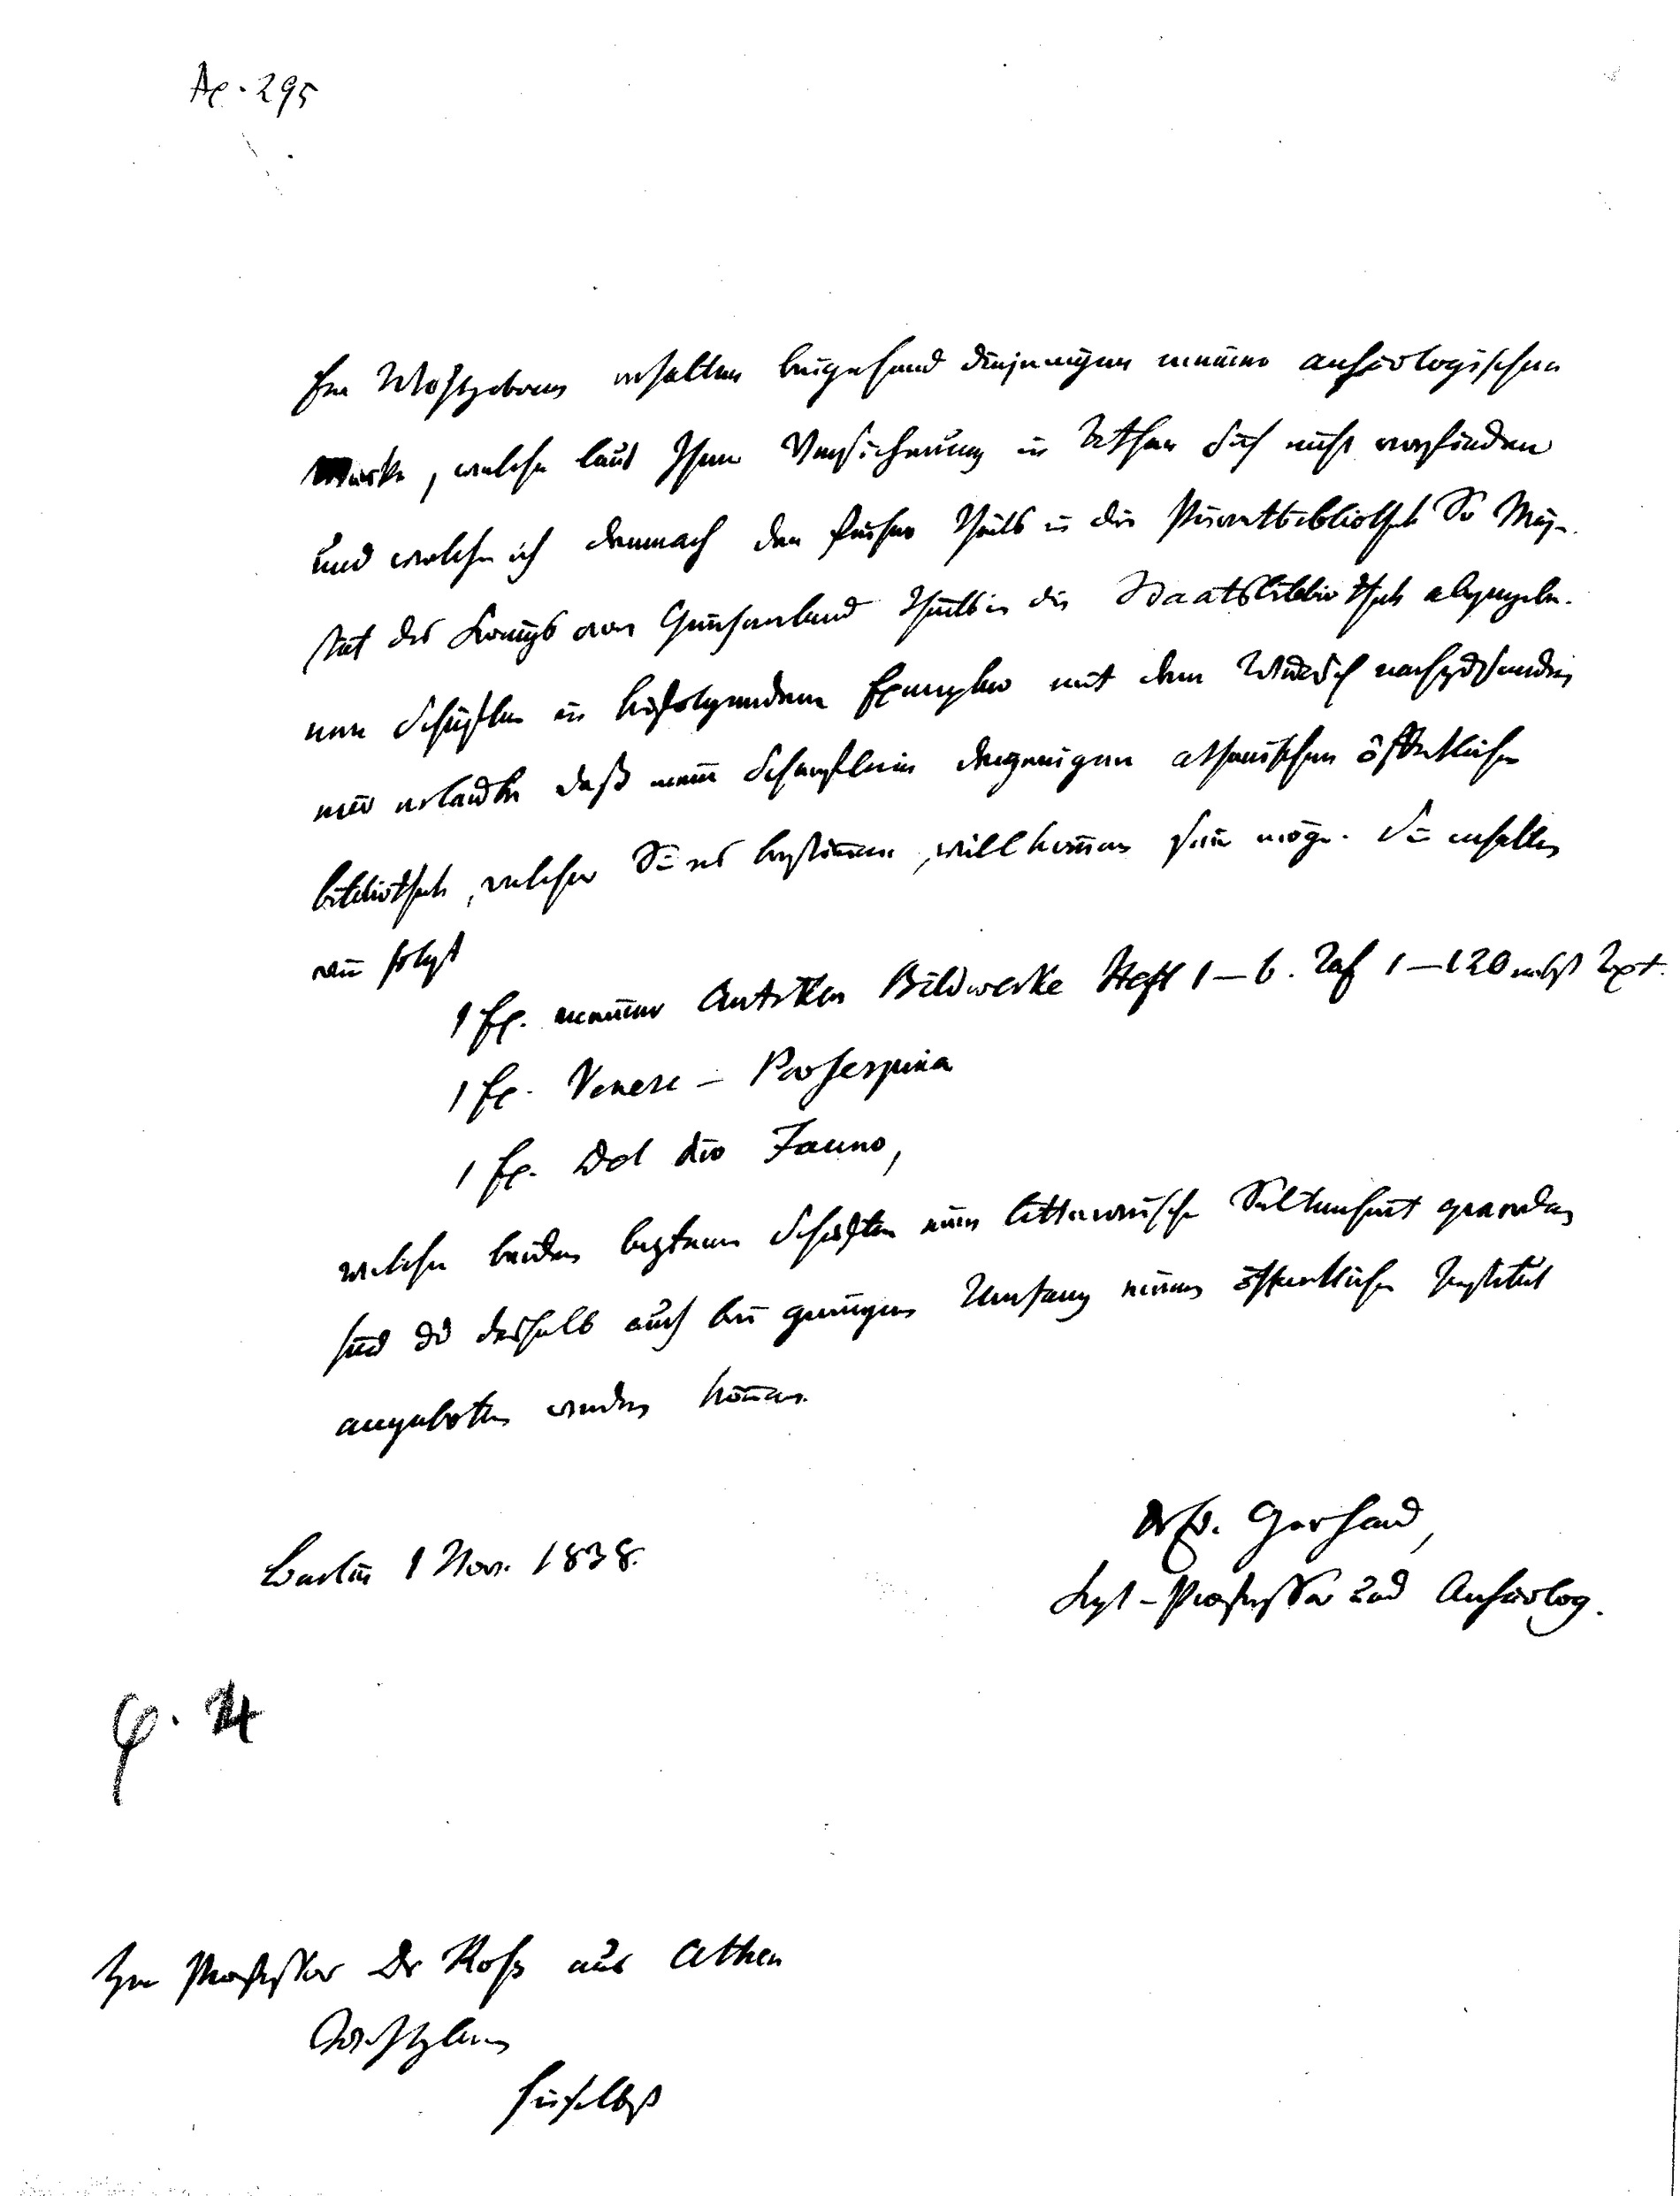 Ap. 295
Ew Wohlgeboren erhalten beigehend diejenigen meiner archäologischen
Werke, welche laut Ihrer Versicherung in Athen sich nicht vorfinden
und welche ich demnach den früher theils in die Privatbibliothek Sr Maje-
stät des Königs von Griechenland theils in die Staatsbibliothek abgegebe-
nen Schriften in beifolgendem Exemplar mit dem Wunsch nachzusenden
mir erlaube daß mein Scherflein derjenigen athenischen öffentlichen
bibliothek, welcher Sie es bestimmen, willkommen sein möge. Sie erhalten
wie folgt
1 Ex. meiner Antiken Bildwerke Heft 1-6. Taf 1-120 nebst Text.
1 Ex. Venere-Proserpina
1 Ex. Del dio Fauno,
welche beiden letztern Schriften eine litterarische Seltenheit geworden
sind und deshalb auch bei geringem Umfang einem öffentlichen Institut
angeboten werden können.
Berlin 1 Nov. 1838.
Dr Ed. Gerhard,
Kgl-Professor und Archäolog.
φ. 14
Hrn Professor Dr Roß aus Athen
Wohlgeboren
hieselbst